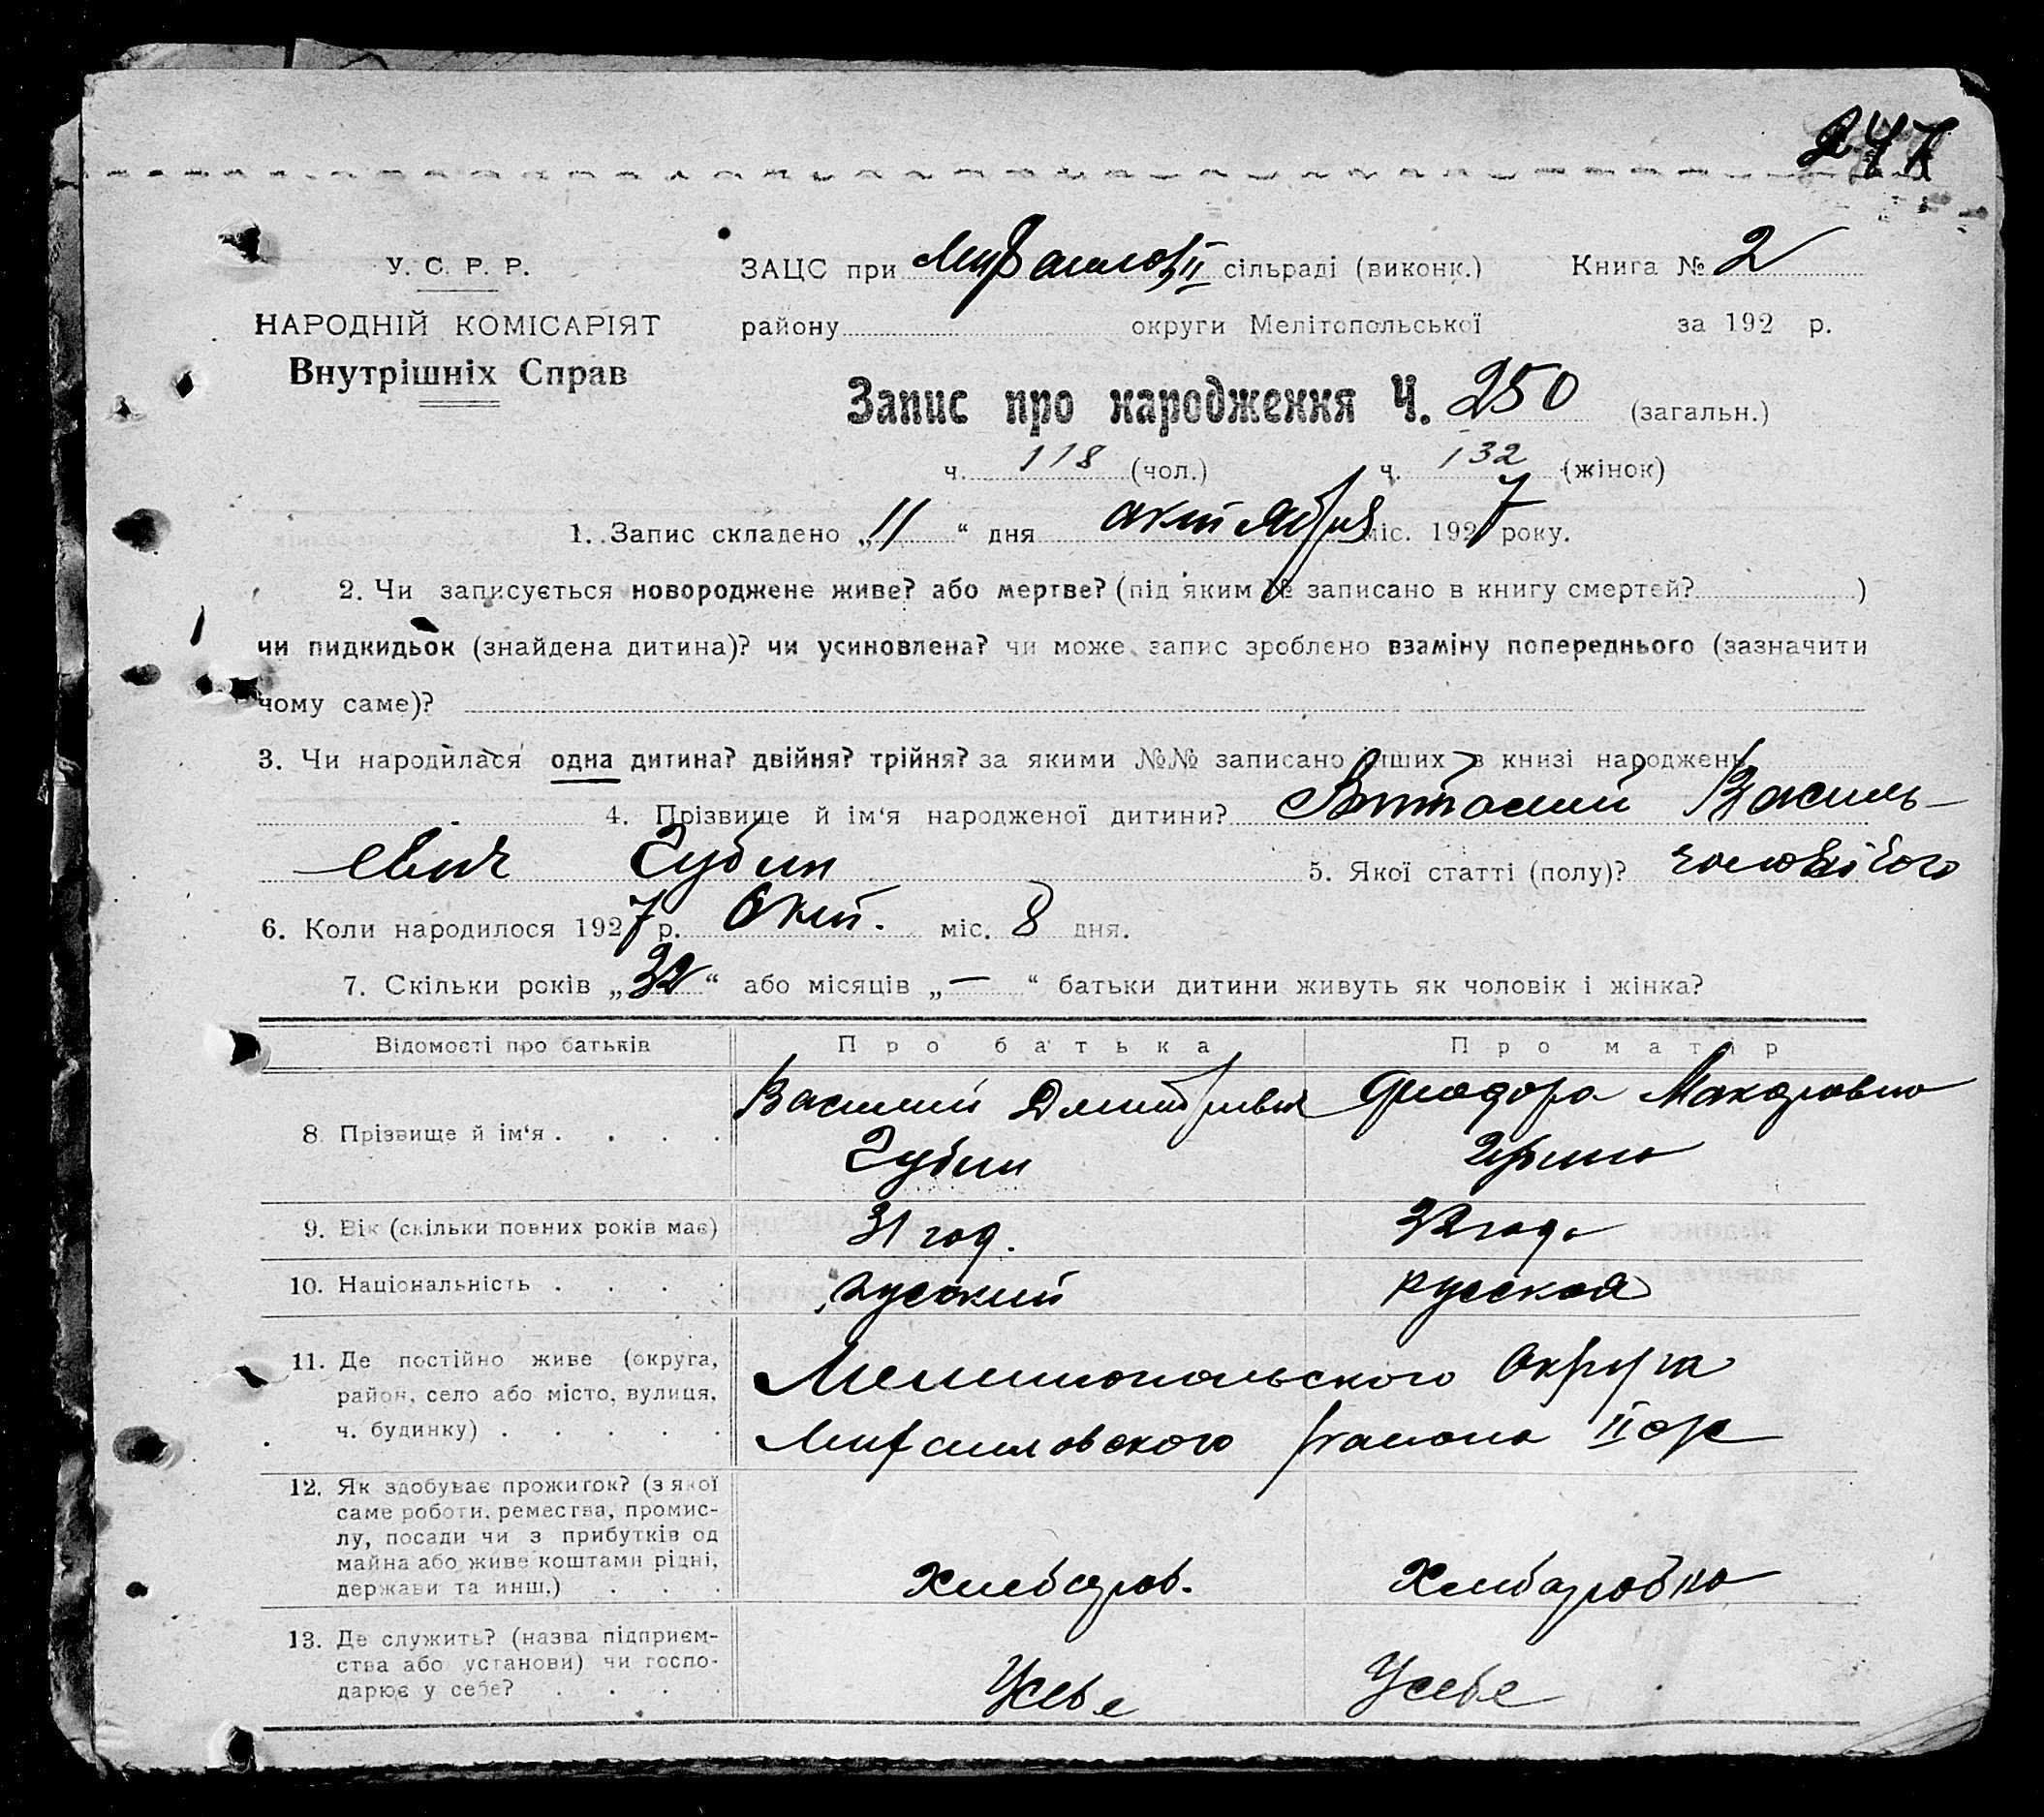 247
У. С. Р. Р.
НАРОДНІЙ КОМІСАРІЯТ
Внутрішніх Справ
ЗАЦС при II сільраді (виконк.) Книга № 2
району округи Мелітопольської за 192 р.
Запис про народження Ч. 250 (загальн.)
ч. 118 (чол.) ч. 132 (жінок)
1. Запис складено „11“ дня октября міс. 1927 року.
2. Чи записується новороджене живе? або мертве? (під яким № записано в книгу смертей? )
чи пидкидьок (знайдена дитина)? чи усиновлена? чи може запис зроблено взаміну попереднього (зазначити
чому саме)?
3. Чи народилася одна дитина? двійня? трійня? за якими №№ записано інших в книзі народжень
4. Прізвище й ім‘я народженої дитини? Василь-
евич Губин 5. Якої статті (полу)? чоловічого
6. Коли народилося 1927 р. Окт. міс. 8 дня.
7. Скільки років „32“ або місяців „—“ батьки дитини живуть як чоловік і жінка?
Відомості про батьків Про батька Про матір
8. Прізвище й ім‘я . . . . Василий Дмитриевич Феодора Макаровна
Губин
9. Вік (скільки повних років має) 31 год. 32 года
10. Національність . . . . русский русская
11. Де постійно живе (округа,
район, село або місто, вулиця,
ч. будинку) . . . . . Мелитопольского Округа
Михайловского района II
12. Як здобуває прожиток? (з якої
саме роботи, ремества, промис-
лу, посади чи з прибутків од
майна або живе коштами рідні,
держави та инш.) . . . Хлебороб. Хлеборобка
13. Де служить? (назва підприєм-
ства або установи) чи госпо-
дарює у себе? . . . . У себе У себе